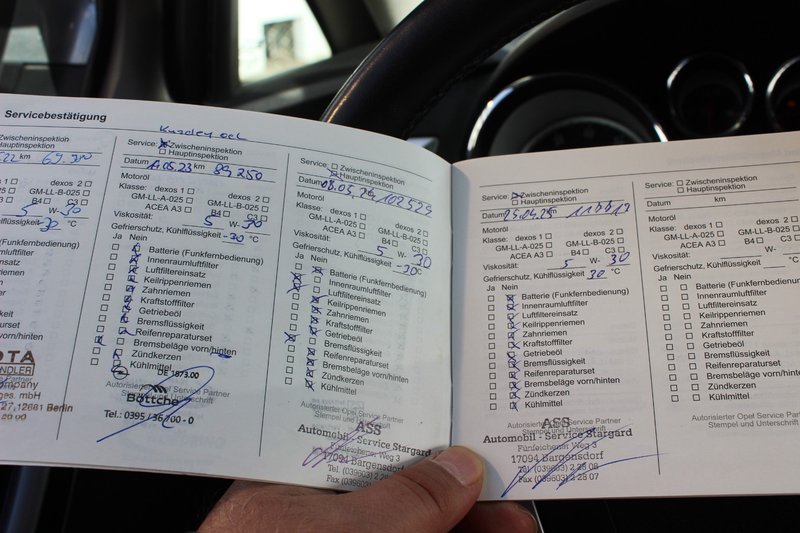 Servicebestätigung
Zwischeninspektion
Hauptinspektion
km
dexos 2
GM-LL-B-025
B4 C3
5 W-30
Kühlflüssigkeit -30 °C
(Funkfernbedienung)
Innenraumluftfilter
Luftfiltereinsatz
Keilrippenriemen
Zahnriemen
Kraftstofffilter
Getriebeöl
Bremsflüssigkeit
Reifenreparaturset
Bremsbeläge vorn/hinten
Zündkerzen
Kühlmittel
12681 Berlin
Service: Zwischeninspektion
Hauptinspektion
Datum 05.23 km 89250
Motoröl
Klasse: dexos 1 dexos 2
GM-LL-A-025 GM-LL-B-025
ACEA A3 B4 C3
Viskosität: 5 W-30
Gefrierschutz, Kühlflüssigkeit -30 °C
Ja Nein
Batterie (Funkfernbedienung)
Innenraumluftfilter
Luftfiltereinsatz
Keilrippenriemen
Zahnriemen
Kraftstofffilter
Getriebeöl
Bremsflüssigkeit
Reifenreparaturset
Bremsbeläge vorn/hinten
Zündkerzen
Kühlmittel
DE 1873.00
Autorisierter Opel Service Partner
Stempel und Unterschrift
Böttche
Tel.: 0395/36 00-0
Service: Zwischeninspektion
Hauptinspektion
Datum 08.05.24 102529
Motoröl
Klasse: dexos 1 dexos 2
GM-LL-A-025 GM-LL-B-025
ACEA A3 B4 C3
Viskosität: 5 W-30
Gefrierschutz, Kühlflüssigkeit -30 °C
Ja Nein
Batterie (Funkfernbedienung)
Innenraumluftfilter
Luftfiltereinsatz
Keilrippenriemen
Zahnriemen
Kraftstofffilter
Getriebeöl
Bremsflüssigkeit
Reifenreparaturset
Bremsbeläge vorn/hinten
Zündkerzen
Kühlmittel
Autorisierter Opel Service Partner
Stempel und Unterschrift
ASS
Automobil - Service Stargard
Fünfeichener Weg 3
17094 Bargensdorf
Tel (039603) 2 28 08
Fax (039603) 2 28 07
Service: Zwischeninspektion
Hauptinspektion
Datum 25.04.25 km
Motoröl
Klasse: dexos 1 dexos 2
GM-LL-A-025 GM-LL-B-025
ACEA A3 B4 C3
Viskosität: 5 W-30
Gefrierschutz, Kühlflüssigkeit 30 °C
Ja Nein
Batterie (Funkfernbedienung)
Innenraumluftfilter
Luftfiltereinsatz
Keilrippenriemen
Zahnriemen
Kraftstofffilter
Getriebeöl
Bremsflüssigkeit
Reifenreparaturset
Bremsbeläge vorn/hinten
Zündkerzen
Kühlmittel
Autorisierter Opel Service Partner
Stempel und Unterschrift
ASS
Automobil - Service Stargard
Fünfeichener Weg 3
17094 Bargensdorf
Tel (039603) 2 28 08
Fax (039603) 2 28 07
Service: Zwischeninspektion
Hauptinspektion
Datum km
Motoröl
Klasse: dexos 1 dexos 2
GM-LL-A-025 GM-LL-B-025
ACEA A3 B4 C3
Viskosität: W-
Gefrierschutz, Kühlflüssigkeit °C
Ja Nein
Batterie (Funkfernbedienung)
Innenraumluftfilter
Luftfiltereinsatz
Keilrippenriemen
Zahnriemen
Kraftstofffilter
Getriebeöl
Bremsflüssigkeit
Reifenreparaturset
Bremsbeläge vorn/hinten
Zündkerzen
Kühlmittel
Autorisierter Opel Service Partner
Stempel und Unterschrift